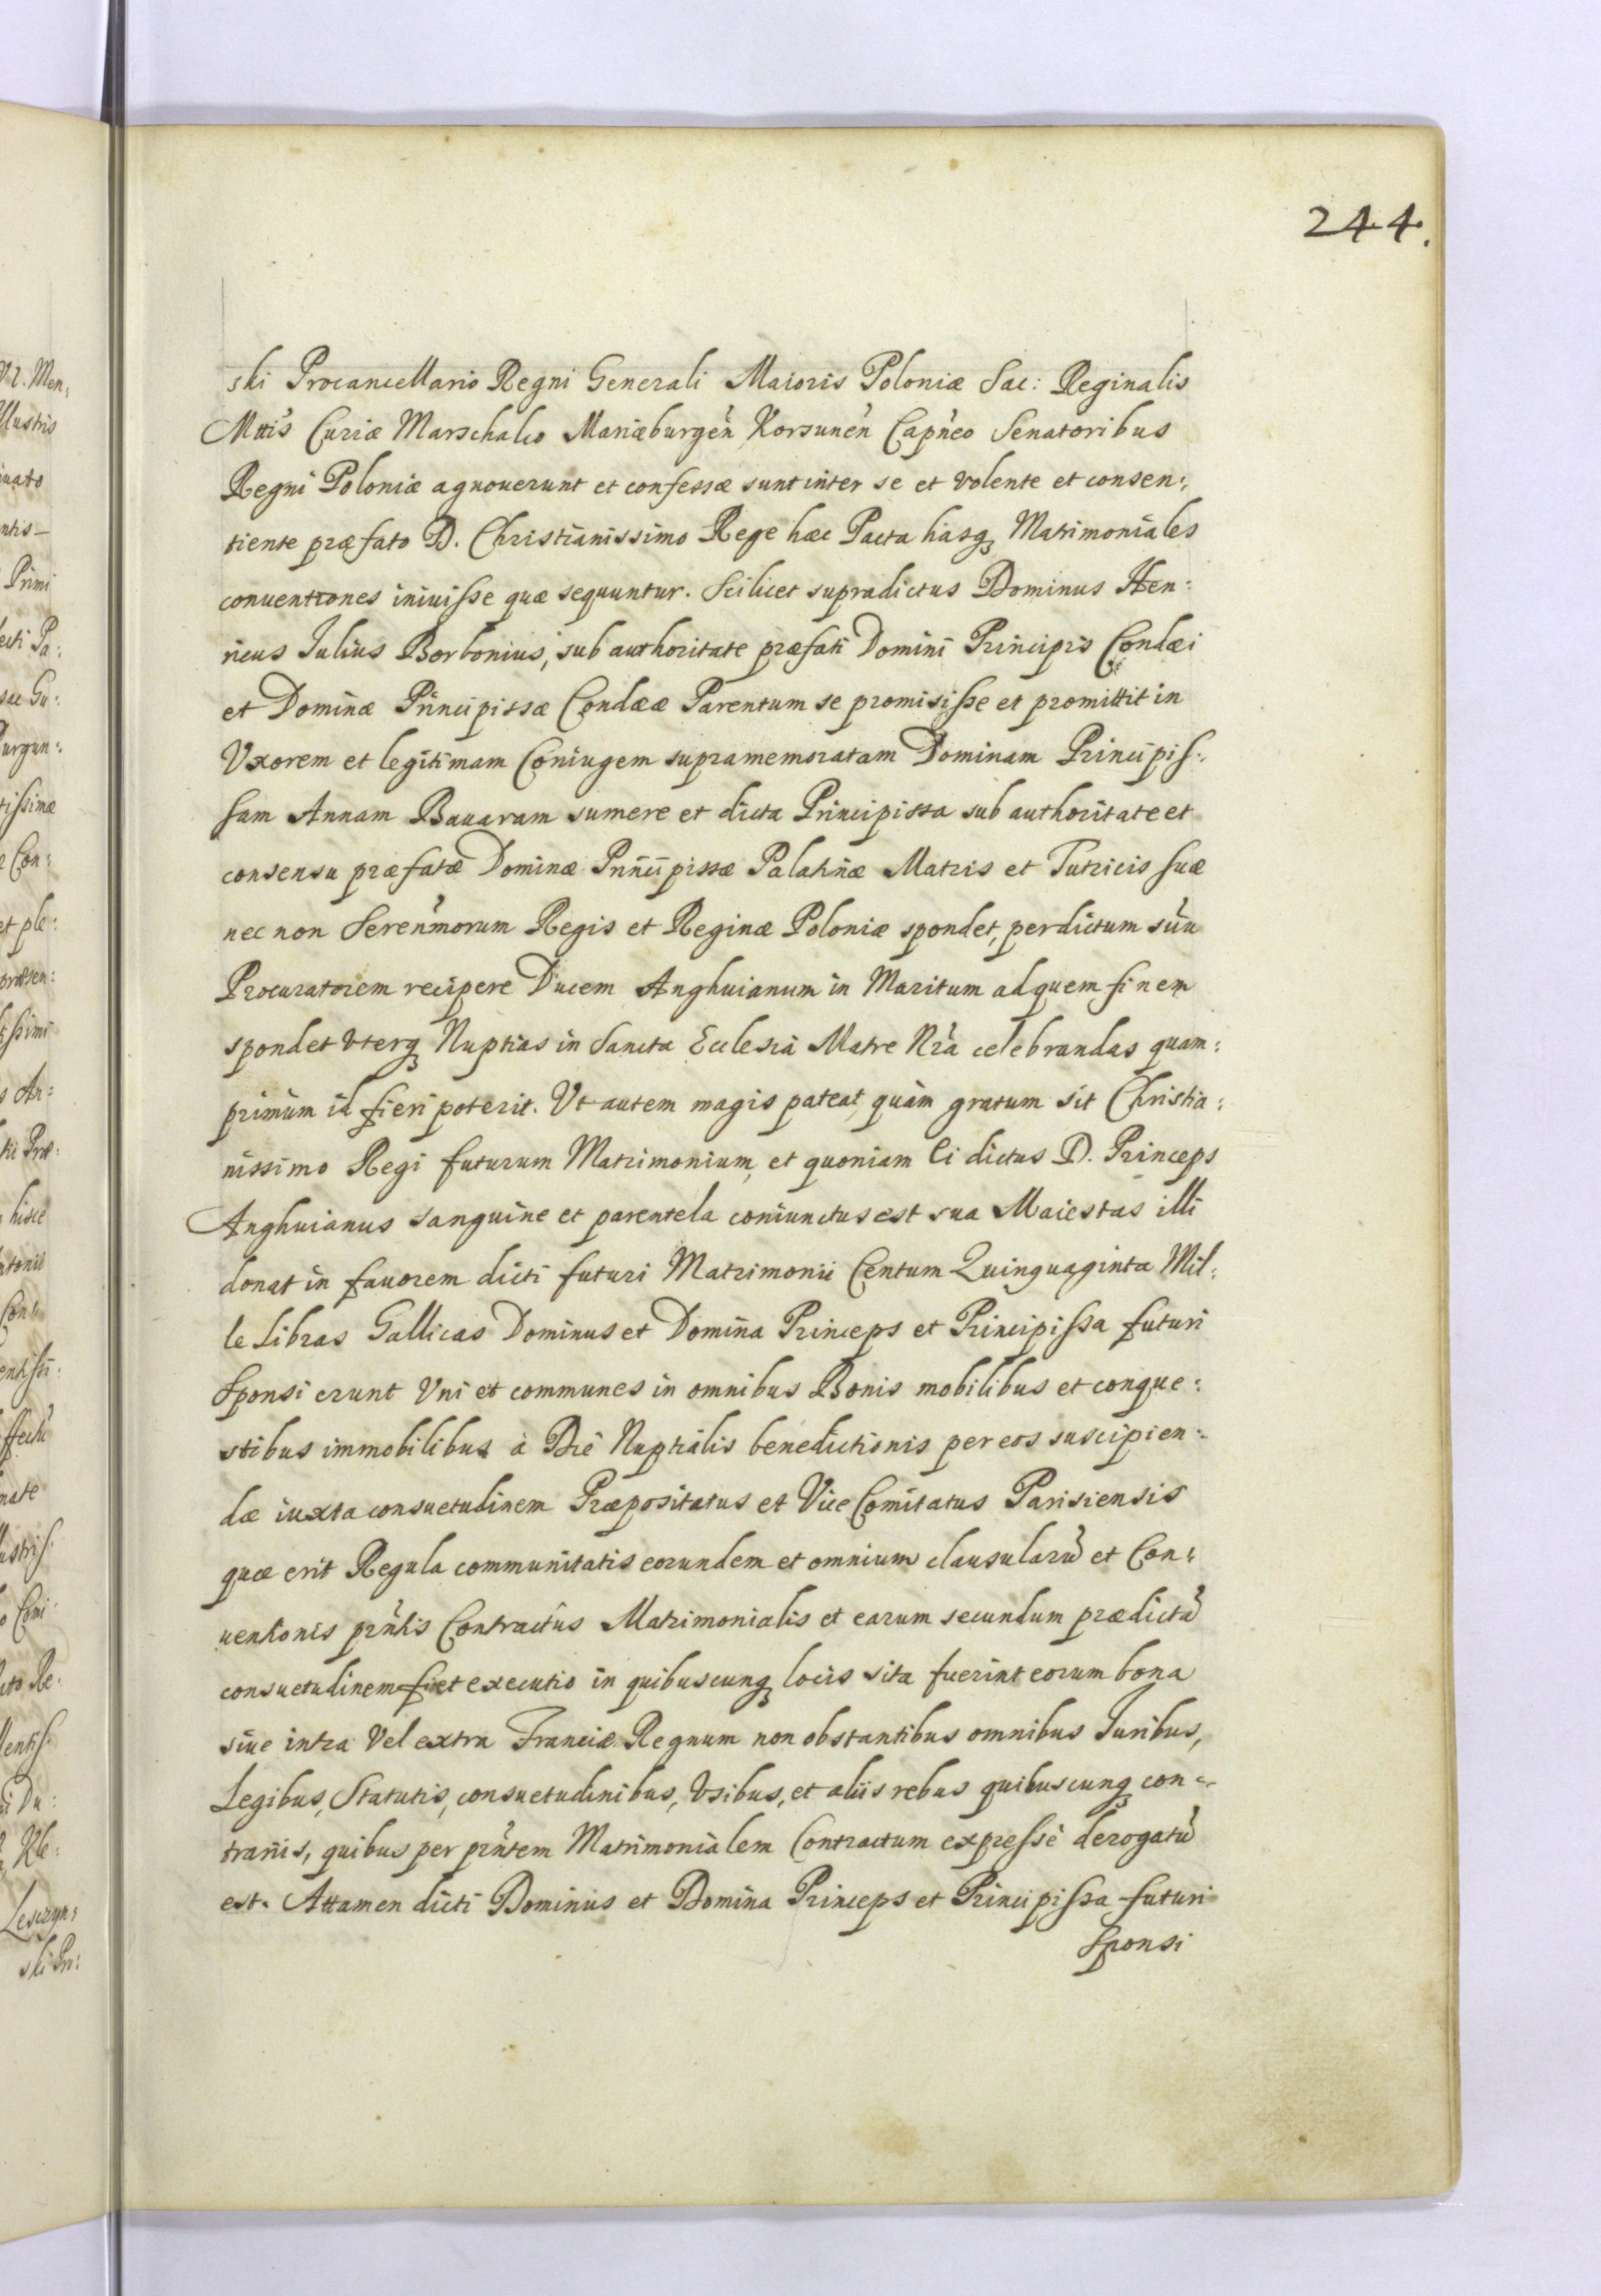 244.
ski Procancellario Regni Generali Maioris Poloniæ Sac: Reginalis
Mttis Curiæ Marschalco Mariæburgeñ Korsuneñ Capñeo Senatoribus
Regni Poloniæ agnouerunt et confessæ sunt inter se et volente et consen:
tiente præfato D. Christianissimo Rege hæc Pacta hasqꝫ Matrimoniales
conuentiones iniuisse quæ sequuntur. Scilicet supradictus Dominus Hen:
ricus Julius Borbonius, sub authoritate præfati Domini Principis Condæi
et Dominæ Principissæ Condææ Parentum se promisisse et promittit in
Vxorem et legitimam Coniugem supramemoratam Dominam Principis:
sam Annam Bauaram sumere et dicta Principissa sub authoritate et
consensu præfatæ Dominæ Principissæ Palatinæ Matris et Tutricis suæ
nec non Sereñmorum Regis et Reginæ Poloniæ spondet, per dictum suũ
Procuratorem recipere Ducem Anghuianum in Maritum ad quem finem
spondet vterqꝫ Nuptias in Sancta Ecclesia Matre Nr̃a celebrandas quam:
primùm id fieri poterit. Vt autem magis pateat quàm gratum sit Christia:
nissimo Regi futurum Matrimonium, et quoniam Ei dictus D. Princeps
Anghuianus sanguine et parentela coniunctus est sua Maiestas illi
donat in fauorem dicti futuri Matrimonii Centum Quinquaginta Mil:
le Libras Gallicas Dominus et Domina Princeps et Principissa futuri
Sponsi erunt Vni et communes in omnibus Bonis mobilibus et conque:
stibus immobilibus à Die Nuptialis benedictionis per eos suscipien:
dæ iuxta consuetudinem Præpositatus et Vice Comitatus Parisiensis
quæ erit Regula communitatis eorundem et omnium clausularũ et Con:
uentionis prñtis Contractûs Matrimonialis et earum secundum prædictã
consuetudinem fiet executio in quibuscunqꝫ locis sita fuerint eorum bona
siue intra Vel extra Franciæ Regnum non obstantibus omnibus Juribus,
Legibus, Statutis, consuetudinibus, Vsibus, et aliis rebus quibuscunqꝫ con:
trariis, quibus per prñtem Matrimonialem Contractum expressè derogatũ
est. Attamen dicti Dominus et Domina Princeps et Principissa futuri
Sponsi